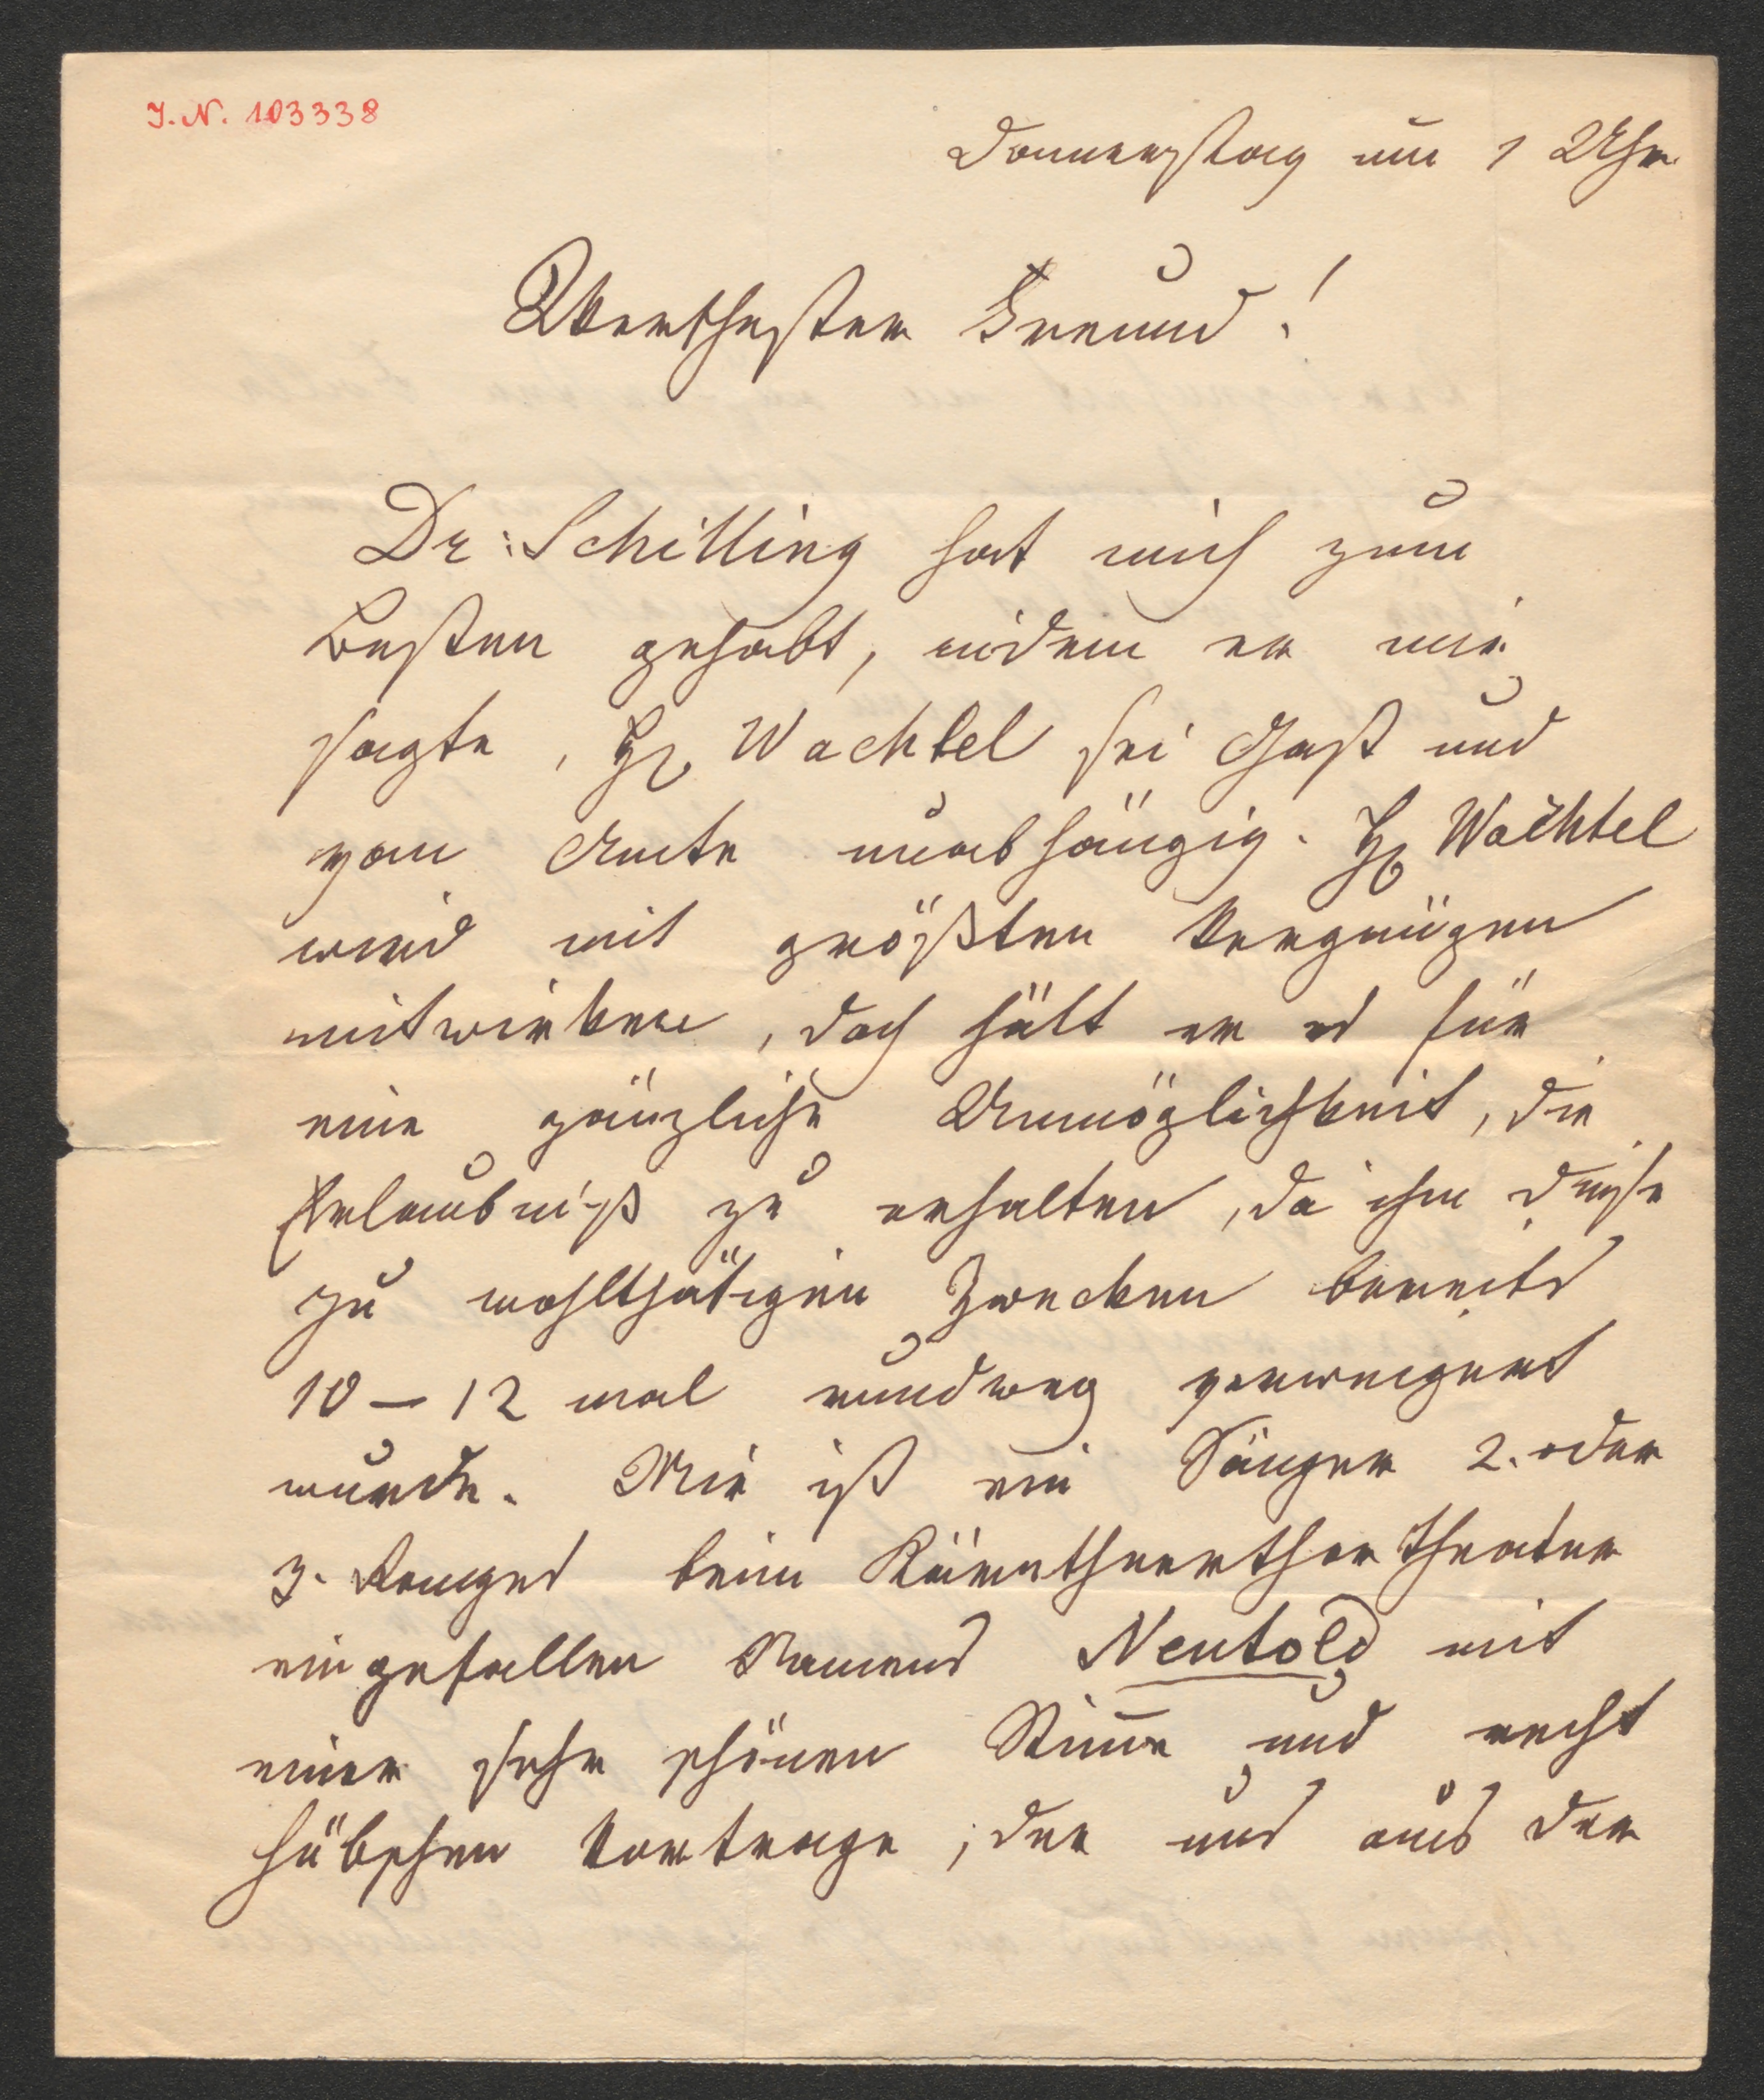 J.N. 103338
Donnerstag um 1 Uhr.
Werthester Freund!
Dr: Schilling hat mich zum
Besten gehabt, indem er mir
sagte, H. Wachtel sei Gast und
vom Amte unabhängig. H. Wachtel
wird mit größten Vergnügen
mitwirken, doch hält er es für
eine gänzliche Unmöglichkeit, die
Erlaubniß zu erhalten, da ihm diese
zu wohlthätigen Zwecken bereits
10 – 12 mal rundweg verweigert
wurde. Mir ist ein Sänger 2. oder
3. Ranges beim Kärnthnerthor Theater
eingefallen Namens Neutold mit
einer sehr schönen Stim̅e und recht
hübschen Vortrage, der uns aus der